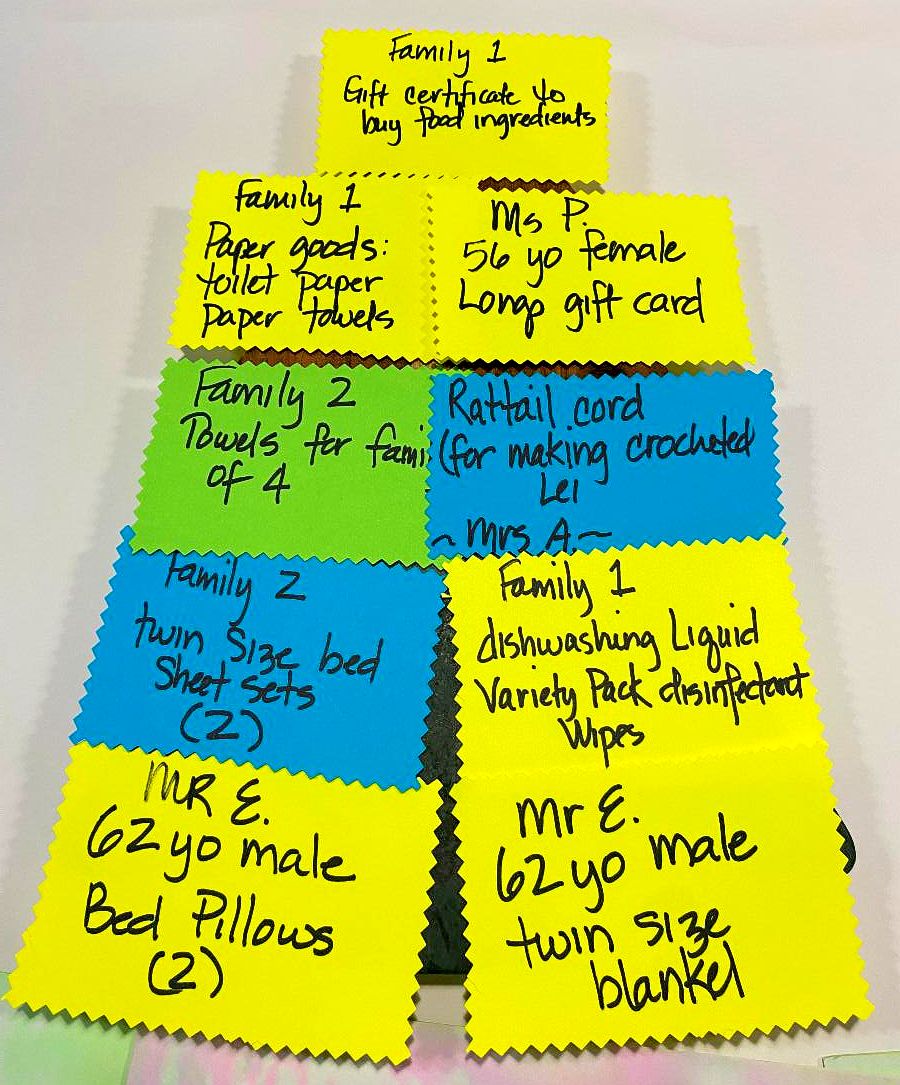 Family 1
Gift certificate to
buy food ingredients
Family 1
Paper goods:
toilet paper
paper towels
Ms P.
56 yo female
Longs gift card
Family 2
Towels for fami
of 4
Rattail cord
(for making crocheted
Lei
~ Mrs A. ~
Family 2
twin size bed
Sheet sets
(2)
Family 1
dishwashing Liquid
Variety Pack disinfectant
Wipes
MR E.
62 yo male
Bed Pillows
(2)
Mr E.
62 yo male
twin size
blanket